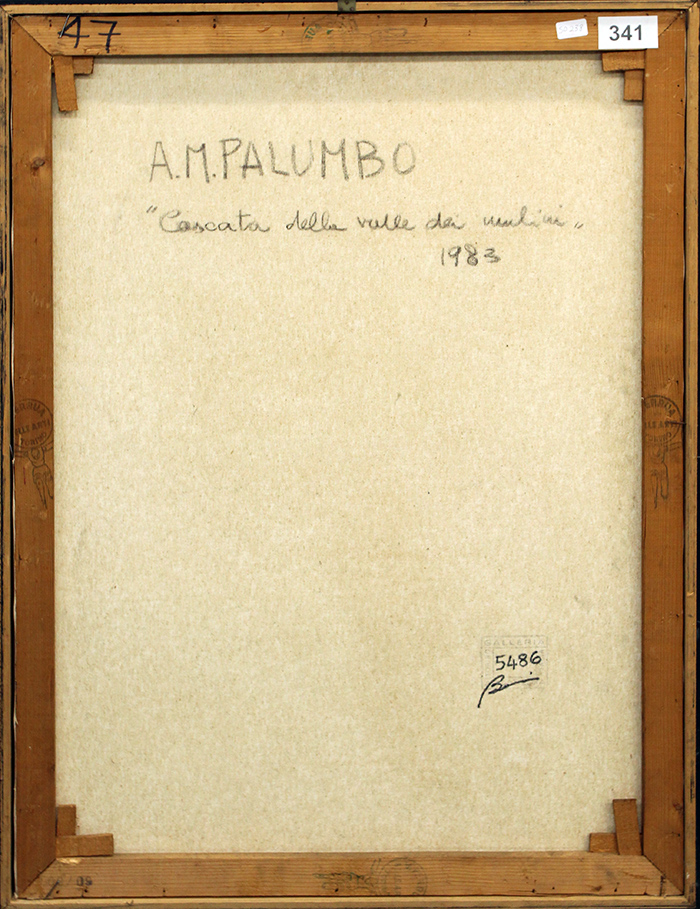 47
341
A.M.PALUMBO
"Cascata della valle dei mulini"
1983
GALLERIA
5486